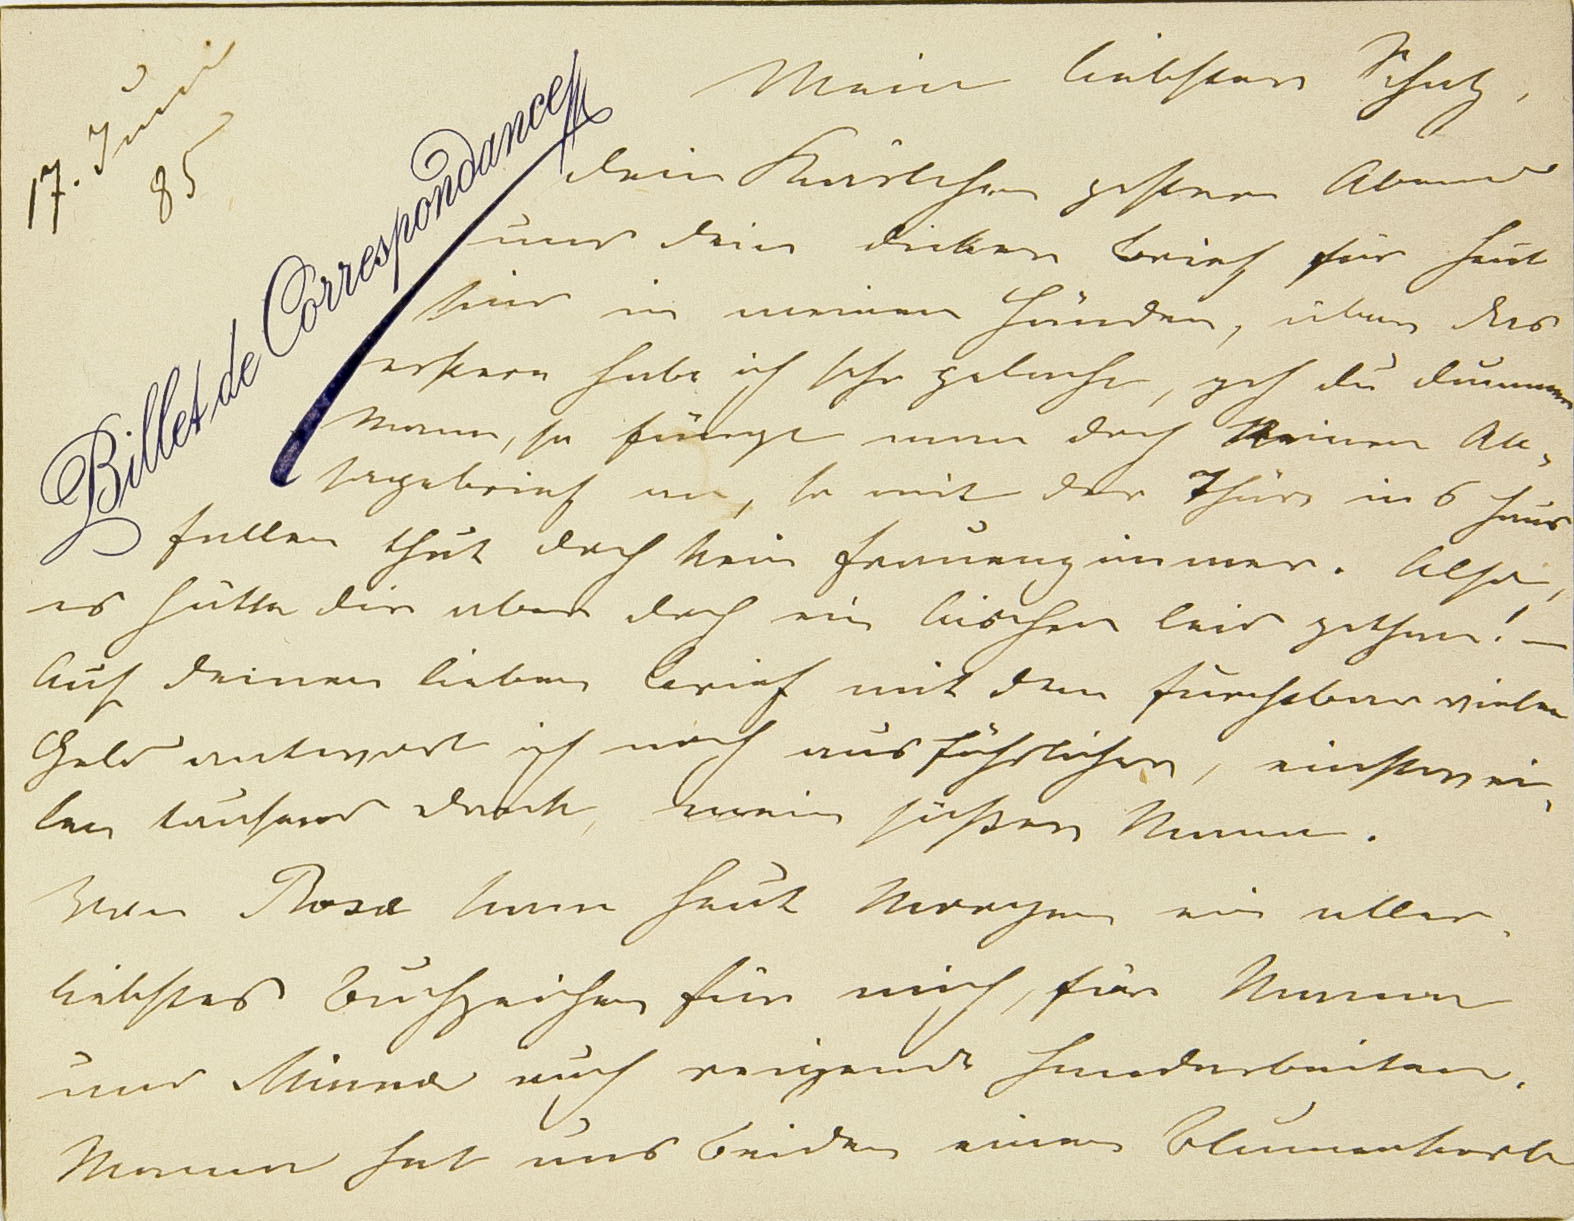 17. Juni
85
Billet de Correspondance
Mein liebster Schatz,
dein Kärtchen gestern Abend
und dein dicker Brief für heut
sind in meinen Händen, über das
erstere habe ich sehr gelacht, geh du dummer
Mann, so fängt man doch keinen Ab-
sagebrief an, so mit der Thür ins Haus
fallen thut doch kein Frauenzimmer. Also,
es hätte dir aber doch ein bischen leid gethan! –
Auf deinen lieben Brief mit dem furchtbar vielen
Geld antwort ich noch ausführlicher, einstwei-
len tausend Dank, mein süßer Mann.
Von Rosa kam heut Morgen ein aller-
liebstes Buchzeichen für mich, für Mama
und Minna auch reizende Handarbeiten.
Mama hat uns beiden einen Blumenkorb